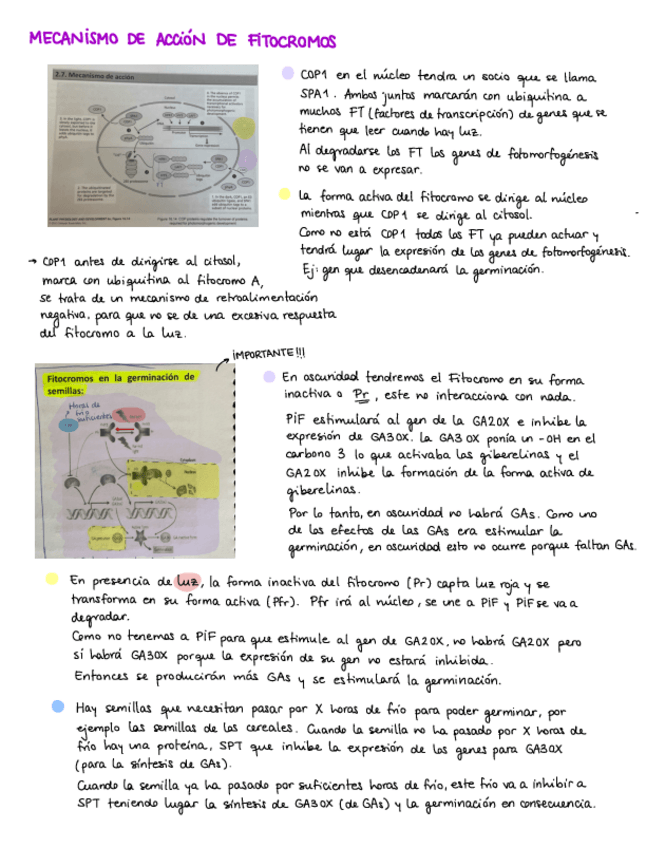 MECANISMO DE ACCIÓN DE FITOCROMOS
2.7. Mecanismo de acción
COP1 en el núcleo tendra un socio que se llama
SPA1. Ambos juntos marcarán con ubiquitina a
muchos FT (factores de transcripción) de genes que se
tienen que leer cuando hay luz.
Al degradarse los FT los genes de fotomorfogénesis
no se van a expresar.
La forma activa del fitocromo se dirige al núcleo
mientras que COP1 se dirige al citosol.
Como no está COP1 todos los FT ya pueden actuar y
tendrá lugar la expresión de los genes de fotomorfogénesis.
Ej: gen que desencadenará la germinación.
→ COP1 antes de dirigirse al citosol,
marca con ubiquitina al fitocromo A,
se trata de un mecanismo de retroalimentación
negativa. para que no se de una excesiva respuesta
del fitocromo a la luz.
¡IMPORTANTE!!!
Fitocromos en la germinación de
semillas:
Horas de
frío
suficientes
En oscuridad tendremos el Fitocromo en su forma
inactiva o Pr, este no interacciona con nada.
PiF estimulará al gen de la GA2OX e inhibe la
expresión de GA3OX. La GA3OX ponía un -OH en el
carbono 3 lo que activaba las giberelinas y el
GA2OX inhibe la formación de la forma activa de
giberelinas.
Por lo tanto, en oscuridad no habrá GAs. Como uno
de los efectos de las GAs era estimular la
germinación, en oscuridad esto no ocurre porque faltan GAs.
En presencia de luz, la forma inactiva del fitocromo (Pr) capta luz roja y se
transforma en su forma activa (Pfr). Pfr irá al núcleo, se une a PiF y PiF se va a
degradar.
Como no tenemos a PiF para que estimule al gen de GA2OX, no habrá GA2OX pero
sí habrá GA3OX porque la expresión de su gen no estará inhibida.
Entonces se producirán más GAs y se estimulará la germinación.
Hay semillas que necesitan pasar por X horas de frío para poder germinar, por
ejemplo las semillas de los cereales. Cuando la semilla no ha pasado por X horas de
frío hay una proteína, SPT que inhibe la expresión de los genes para GA3OX
(para la síntesis de GAs).
Cuando la semilla ya ha pasado por suficientes horas de frío, este frío va a inhibir a
SPT teniendo lugar la síntesis de GA3OX (de GAs) y la germinación en consecuencia.